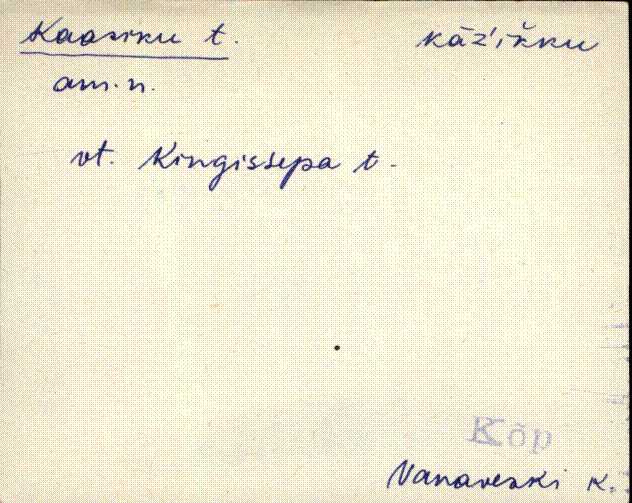 Kaasiku t. kāz'iǯku
am.n.
vt. Kingissepa t.
Kõp
Vanaveski k.